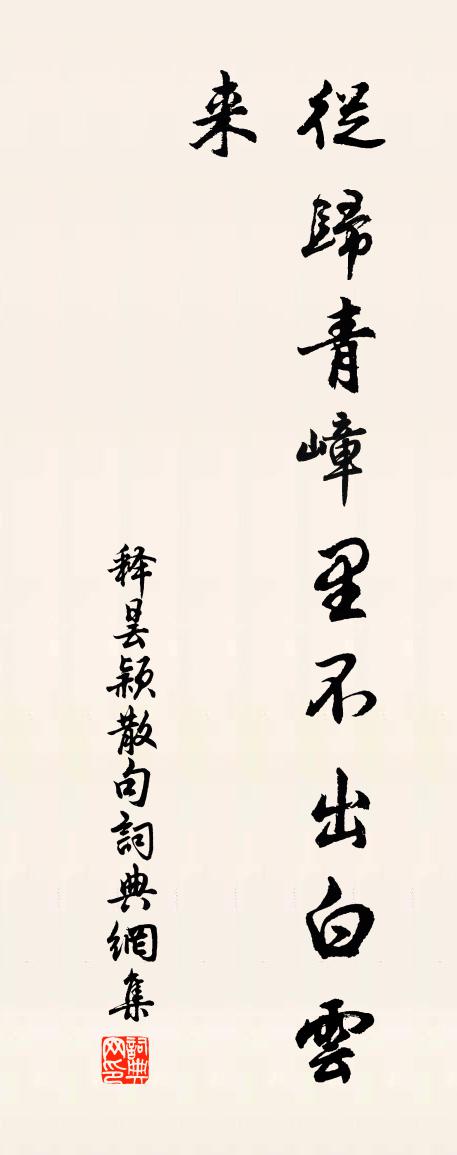 從歸青嶂里不出白雲
来
释昙颖散句詞典網集
詞典
网印